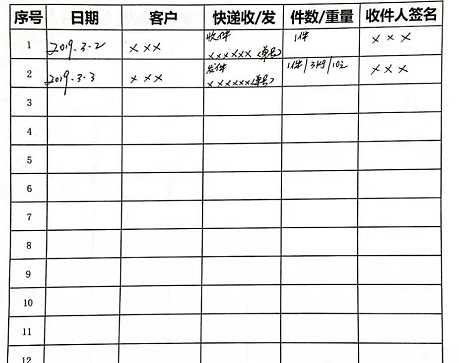 序号 日期 客户 快递收/发 件数/重量 收件人签名
1 2019.3.2 ××× 收件 1件 ×××
×××××× (单号)
2 2019.3.3 ××× 发件 1件/3kg/10元 ×××
××××××(单号)
3
4
5
6
7
8
9
10
11
12